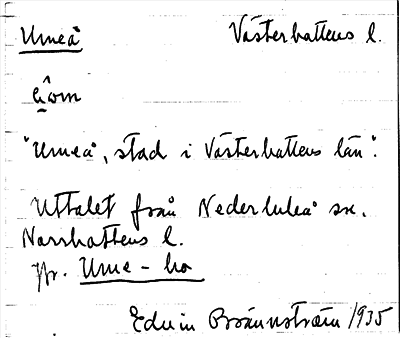 Umeå Västerbottens l.
ûom
"Umeå, stad i Västerbottens län".
Uttalet från Nederluleå sn.
Norrbottens l.
Jfr. Ume-bo
Edvin Brännström 1935